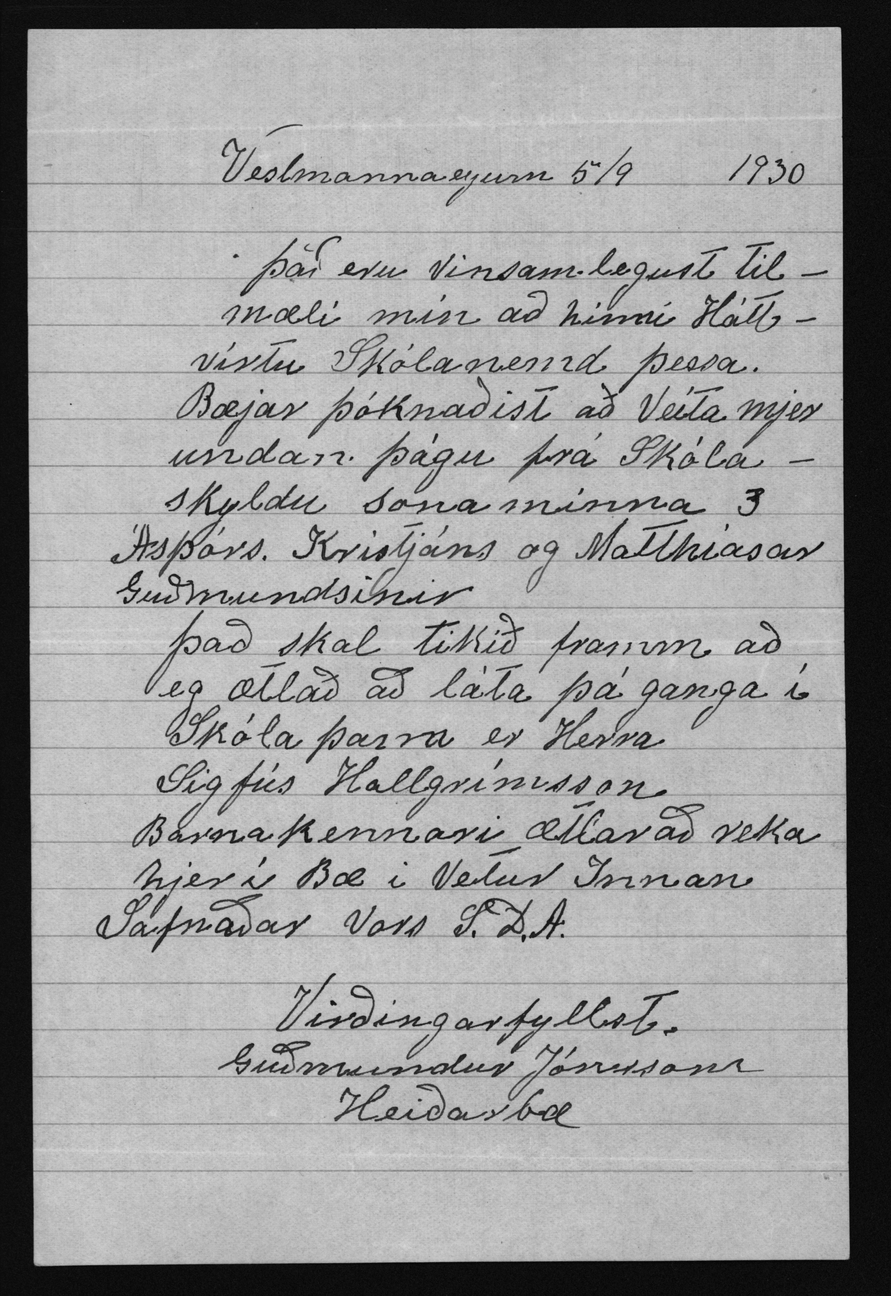 Vestmannaeyum 5/9 1930
það eru vinsamlegust til-
mæli mín að hinni Hátt-
virtu Skólanemd þessa.
Bæjar þóknaðist að Veita mjer
undan þágu frá Skóla-
skyldu sona minna 3
Ásþórs. Kristjáns og Matthiasar
Guðmundsinir
það skal tikið framm að
eg ætlað að láta þá ganga í
Skóla þann er Herra
Sigfús Hallgrímsson
Barnakennari ætlar að reka
hjer í Bæ i Vetur Innan
Safnaðar Vors S. D. A.
Virðingarfyllst.
Guðmundur Jónsson
Heiðarbæ